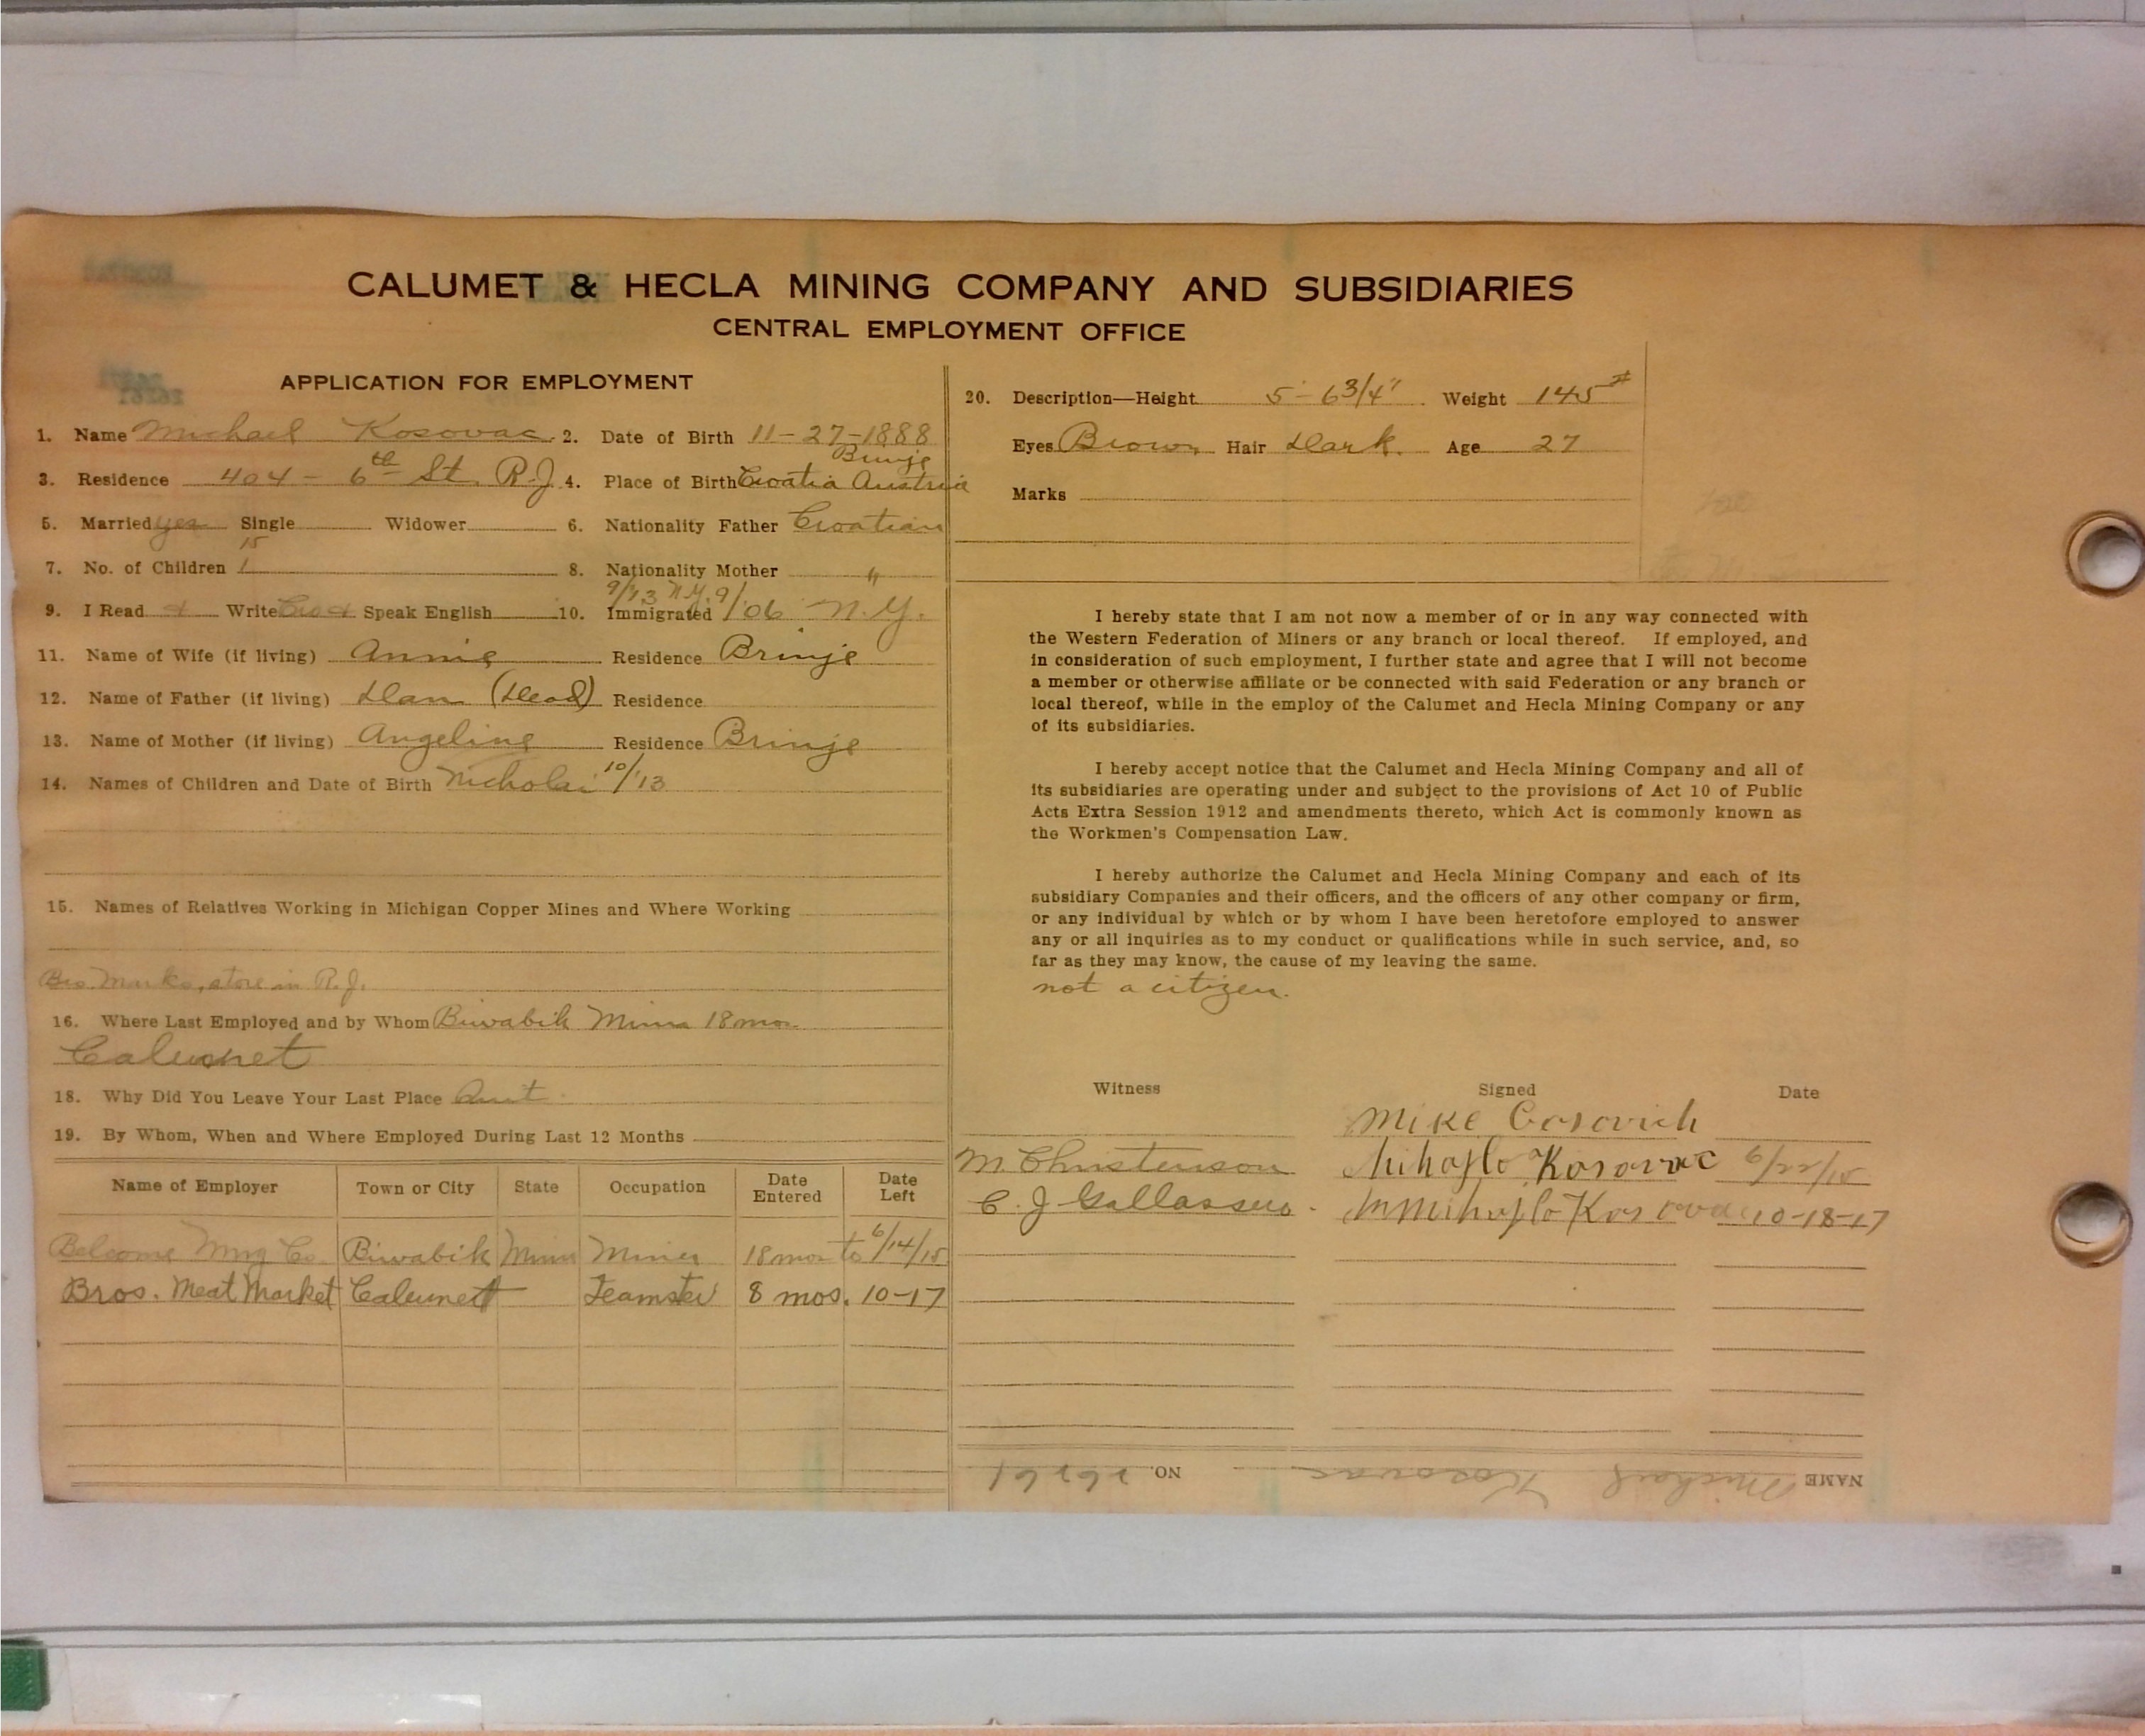 CALUMET & HECLA MINING COMPANY AND SUBSIDIARIES
CENTRAL EMPLOYMENT OFFICE
APPLICATION FOR EMPLOYMENT
1. Name Michael Kosovac 2. Date of Birth 11-27-1888
Brinje
3. Residence 404 - 6th St. R.J. 4. Place of Birth Croatia Austria
5. Married yes Single Widower 6. Nationality Father Croatian
15
7. No. of Children 1 8. Nationality Mother "
9/13 N.Y.
9. I Read Write Speak English 10. Immigrated 9/06 N.Y.
11. Name of Wife (if living) Annie Residence Brinje
12. Name of Father (if living) Dan (Dead) Residence
13. Name of Mother (if living) Angeline Residence Brinje
14. Names of Children and Date of Birth Nicholai 10/13
15. Names of Relatives Working in Michigan Copper Mines and Where Working
Bro. store in R.J.
16. Where Last Employed and by Whom Biwabik Minn 18 mon
Calumet
18. Why Did You Leave Your Last Place Quit
19. By Whom, When and Where Employed During Last 12 Months
Name of Employer Town or City State Occupation Date Entered Date Left
Mng Co. Biwabik Minn Miner 18 mon to 6/14/15
Bros. Meat Market Calumet Teamster 8 mos. 10-17
20. Description—Height 5-6 3/4" Weight 145#
Eyes Brown Hair Dark. Age 27
Marks
I hereby state that I am not now a member of or in any way connected with
the Western Federation of Miners or any branch or local thereof. If employed, and
in consideration of such employment, I further state and agree that I will not become
a member or otherwise affiliate or be connected with said Federation or any branch or
local thereof, while in the employ of the Calumet and Hecla Mining Company or any
of its subsidiaries.
I hereby accept notice that the Calumet and Hecla Mining Company and all of
its subsidiaries are operating under and subject to the provisions of Act 10 of Public
Acts Extra Session 1912 and amendments thereto, which Act is commonly known as
the Workmen's Compensation Law.
I hereby authorize the Calumet and Hecla Mining Company and each of its
subsidiary Companies and their officers, and the officers of any other company or firm,
or any individual by which or by whom I have been heretofore employed to answer
any or all inquiries as to my conduct or qualifications while in such service, and, so
far as they may know, the cause of my leaving the same.
not a citizen.
Witness Signed Date
Mike Cosovich
M. Christenson Mihajlo Kosovac 6/22/15
C. J. Mihajlo Kosovac 10-18-17
NAME Michael Kosovac NO.